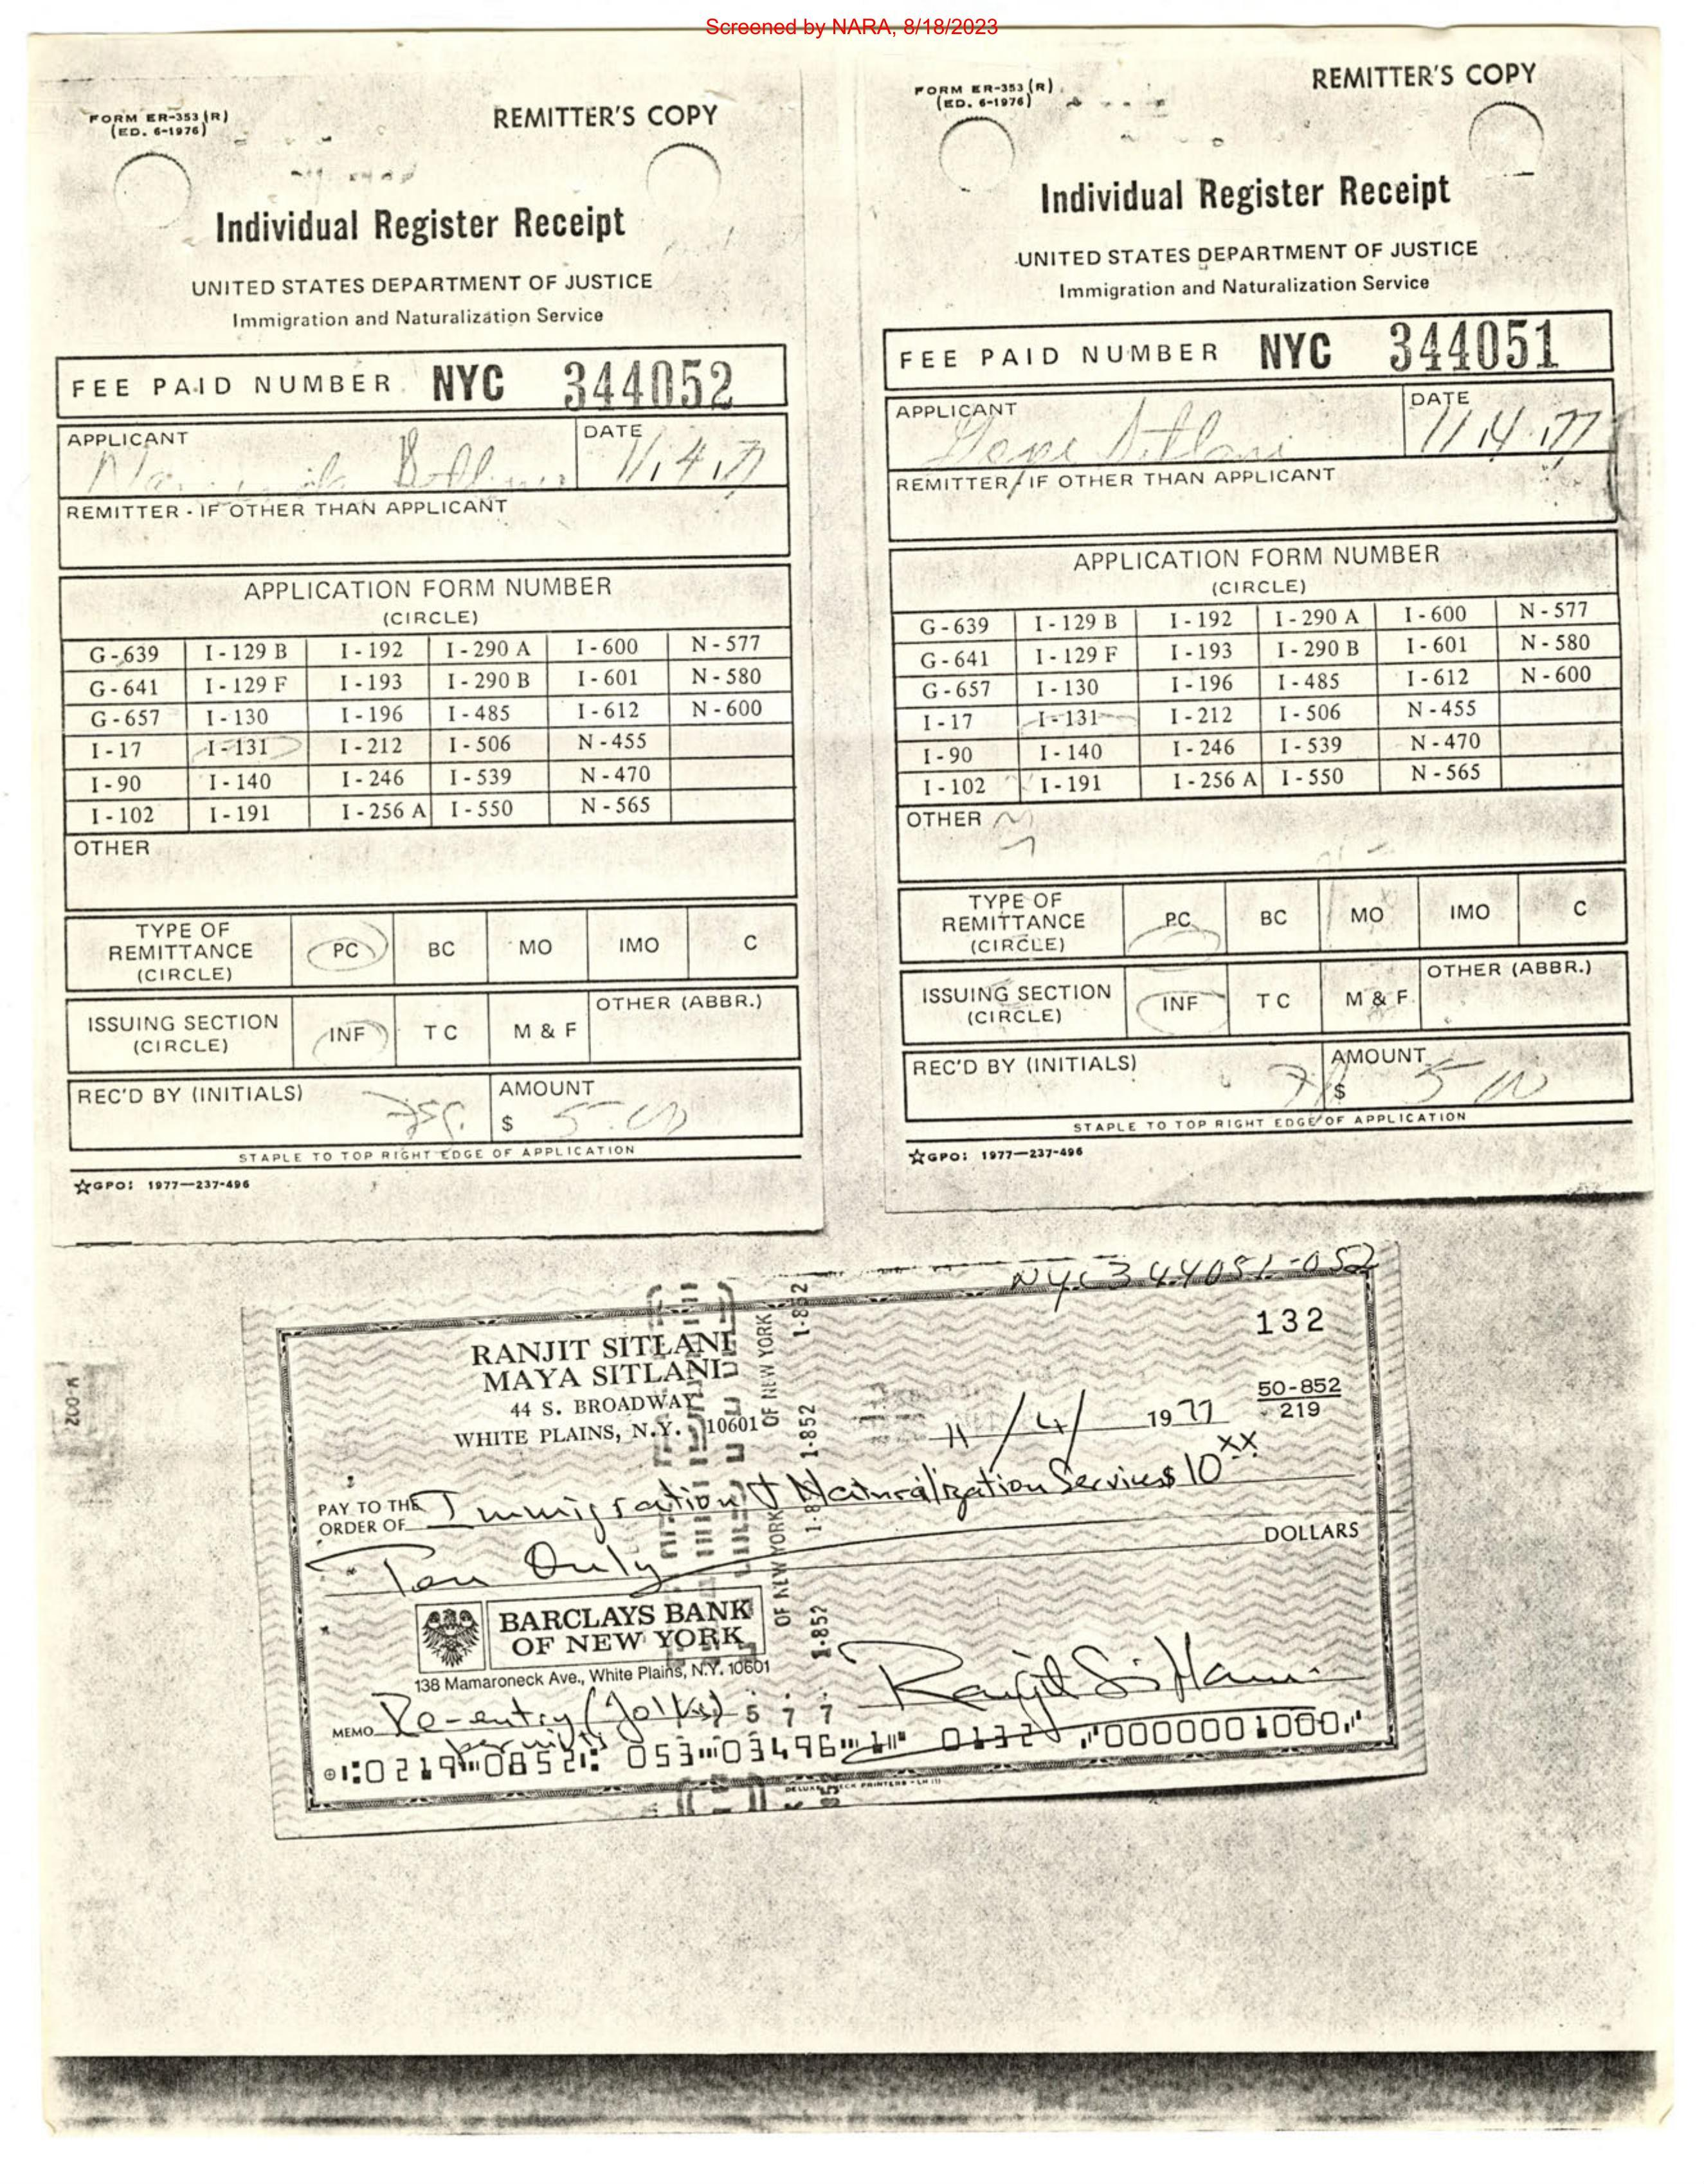 Screened by NARA, 8/18/2023
FORM ER-353 (R)
(ED. 6-1976)
REMITTER'S COPY
Individual Register Receipt
UNITED STATES DEPARTMENT OF JUSTICE
Immigration and Naturalization Service
FEE PAID NUMBER NYC 344052
APPLICANT
DATE
11,4,77
REMITTER - IF OTHER THAN APPLICANT
APPLICATION FORM NUMBER
(CIRCLE)
G-639 I-129 B I-192 I-290 A I-600 N-577
G-641 I-129 F I-193 I-290 B I-601 N-580
G-657 I-130 I-196 I-485 I-612 N-600
I-17 I-131 I-212 I-506 N-455
I-90 I-140 I-246 I-539 N-470
I-102 I-191 I-256 A I-550 N-565
OTHER
TYPE OF
REMITTANCE
(CIRCLE)
PC BC MO IMO C
ISSUING SECTION
(CIRCLE)
INF TC M & F
OTHER (ABBR.)
REC'D BY (INITIALS)
AMOUNT
$ 5.00
STAPLE TO TOP RIGHT EDGE OF APPLICATION
☆GPO: 1977—237-496
FORM ER-353 (R)
(ED. 6-1976)
REMITTER'S COPY
Individual Register Receipt
UNITED STATES DEPARTMENT OF JUSTICE
Immigration and Naturalization Service
FEE PAID NUMBER NYC 344051
APPLICANT
Gope Sitlani
DATE
11,4,77
REMITTER - IF OTHER THAN APPLICANT
APPLICATION FORM NUMBER
(CIRCLE)
G-639 I-129 B I-192 I-290 A I-600 N-577
G-641 I-129 F I-193 I-290 B I-601 N-580
G-657 I-130 I-196 I-485 I-612 N-600
I-17 I-131 I-212 I-506 N-455
I-90 I-140 I-246 I-539 N-470
I-102 I-191 I-256 A I-550 N-565
OTHER
TYPE OF
REMITTANCE
(CIRCLE)
PC BC MO IMO C
ISSUING SECTION
(CIRCLE)
INF TC M & F
OTHER (ABBR.)
REC'D BY (INITIALS)
AMOUNT
$ 5 00
STAPLE TO TOP RIGHT EDGE OF APPLICATION
☆GPO: 1977—237-496
NYC344051-052
132
RANJIT SITLANI
MAYA SITLANI
44 S. BROADWAY
WHITE PLAINS, N.Y. 10601
11/4/ 1977
50-852
219
PAY TO THE
ORDER OF Immigration & Naturalization Services $ 10 xx
Ten Only DOLLARS
BARCLAYS BANK
OF NEW YORK
138 Mamaroneck Ave., White Plains, N.Y. 10601
Ranjit Sitlani
MEMO Re-entry
permits
5 7 7
0219 0852 053 03496 0132 0000001000
OF NEW YORK
1-852
OF NEW YORK
1-852
1-852